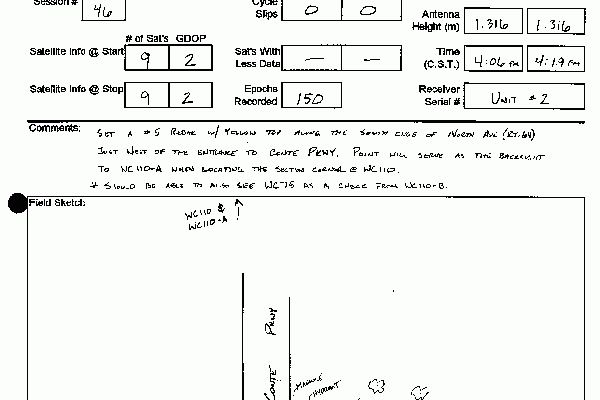 Session # 46 Cycle Slips 0 0 Antenna Height (m) 1.316 1.316
# of Sat's GDOP
Satellite Info @ Start 9 2 Sat's With Less Data — — Time (C.S.T.) 4:06 PM 4:19 PM
Satellite Info @ Stop 9 2 Epochs Recorded 150 Receiver Serial # UNIT #2
Comments: SET A #5 REBAR W/ YELLOW TOP ALONG THE SOUTH EDGE OF NORTH AVE (RT. 64)
JUST WEST OF THE ENTRANCE TO CONTE PKWY. POINT WILL SERVE AS THE BACKSIGHT
TO WC110-A WHEN LOCATING THE SECTION CORNER @ WC110.
* SHOULD BE ABLE TO ALSO SEE WC75 AS A CHECK FROM WC110-B.
Field Sketch:
WC110 &
WC110-A
CONTE PKWY
HYDRANT